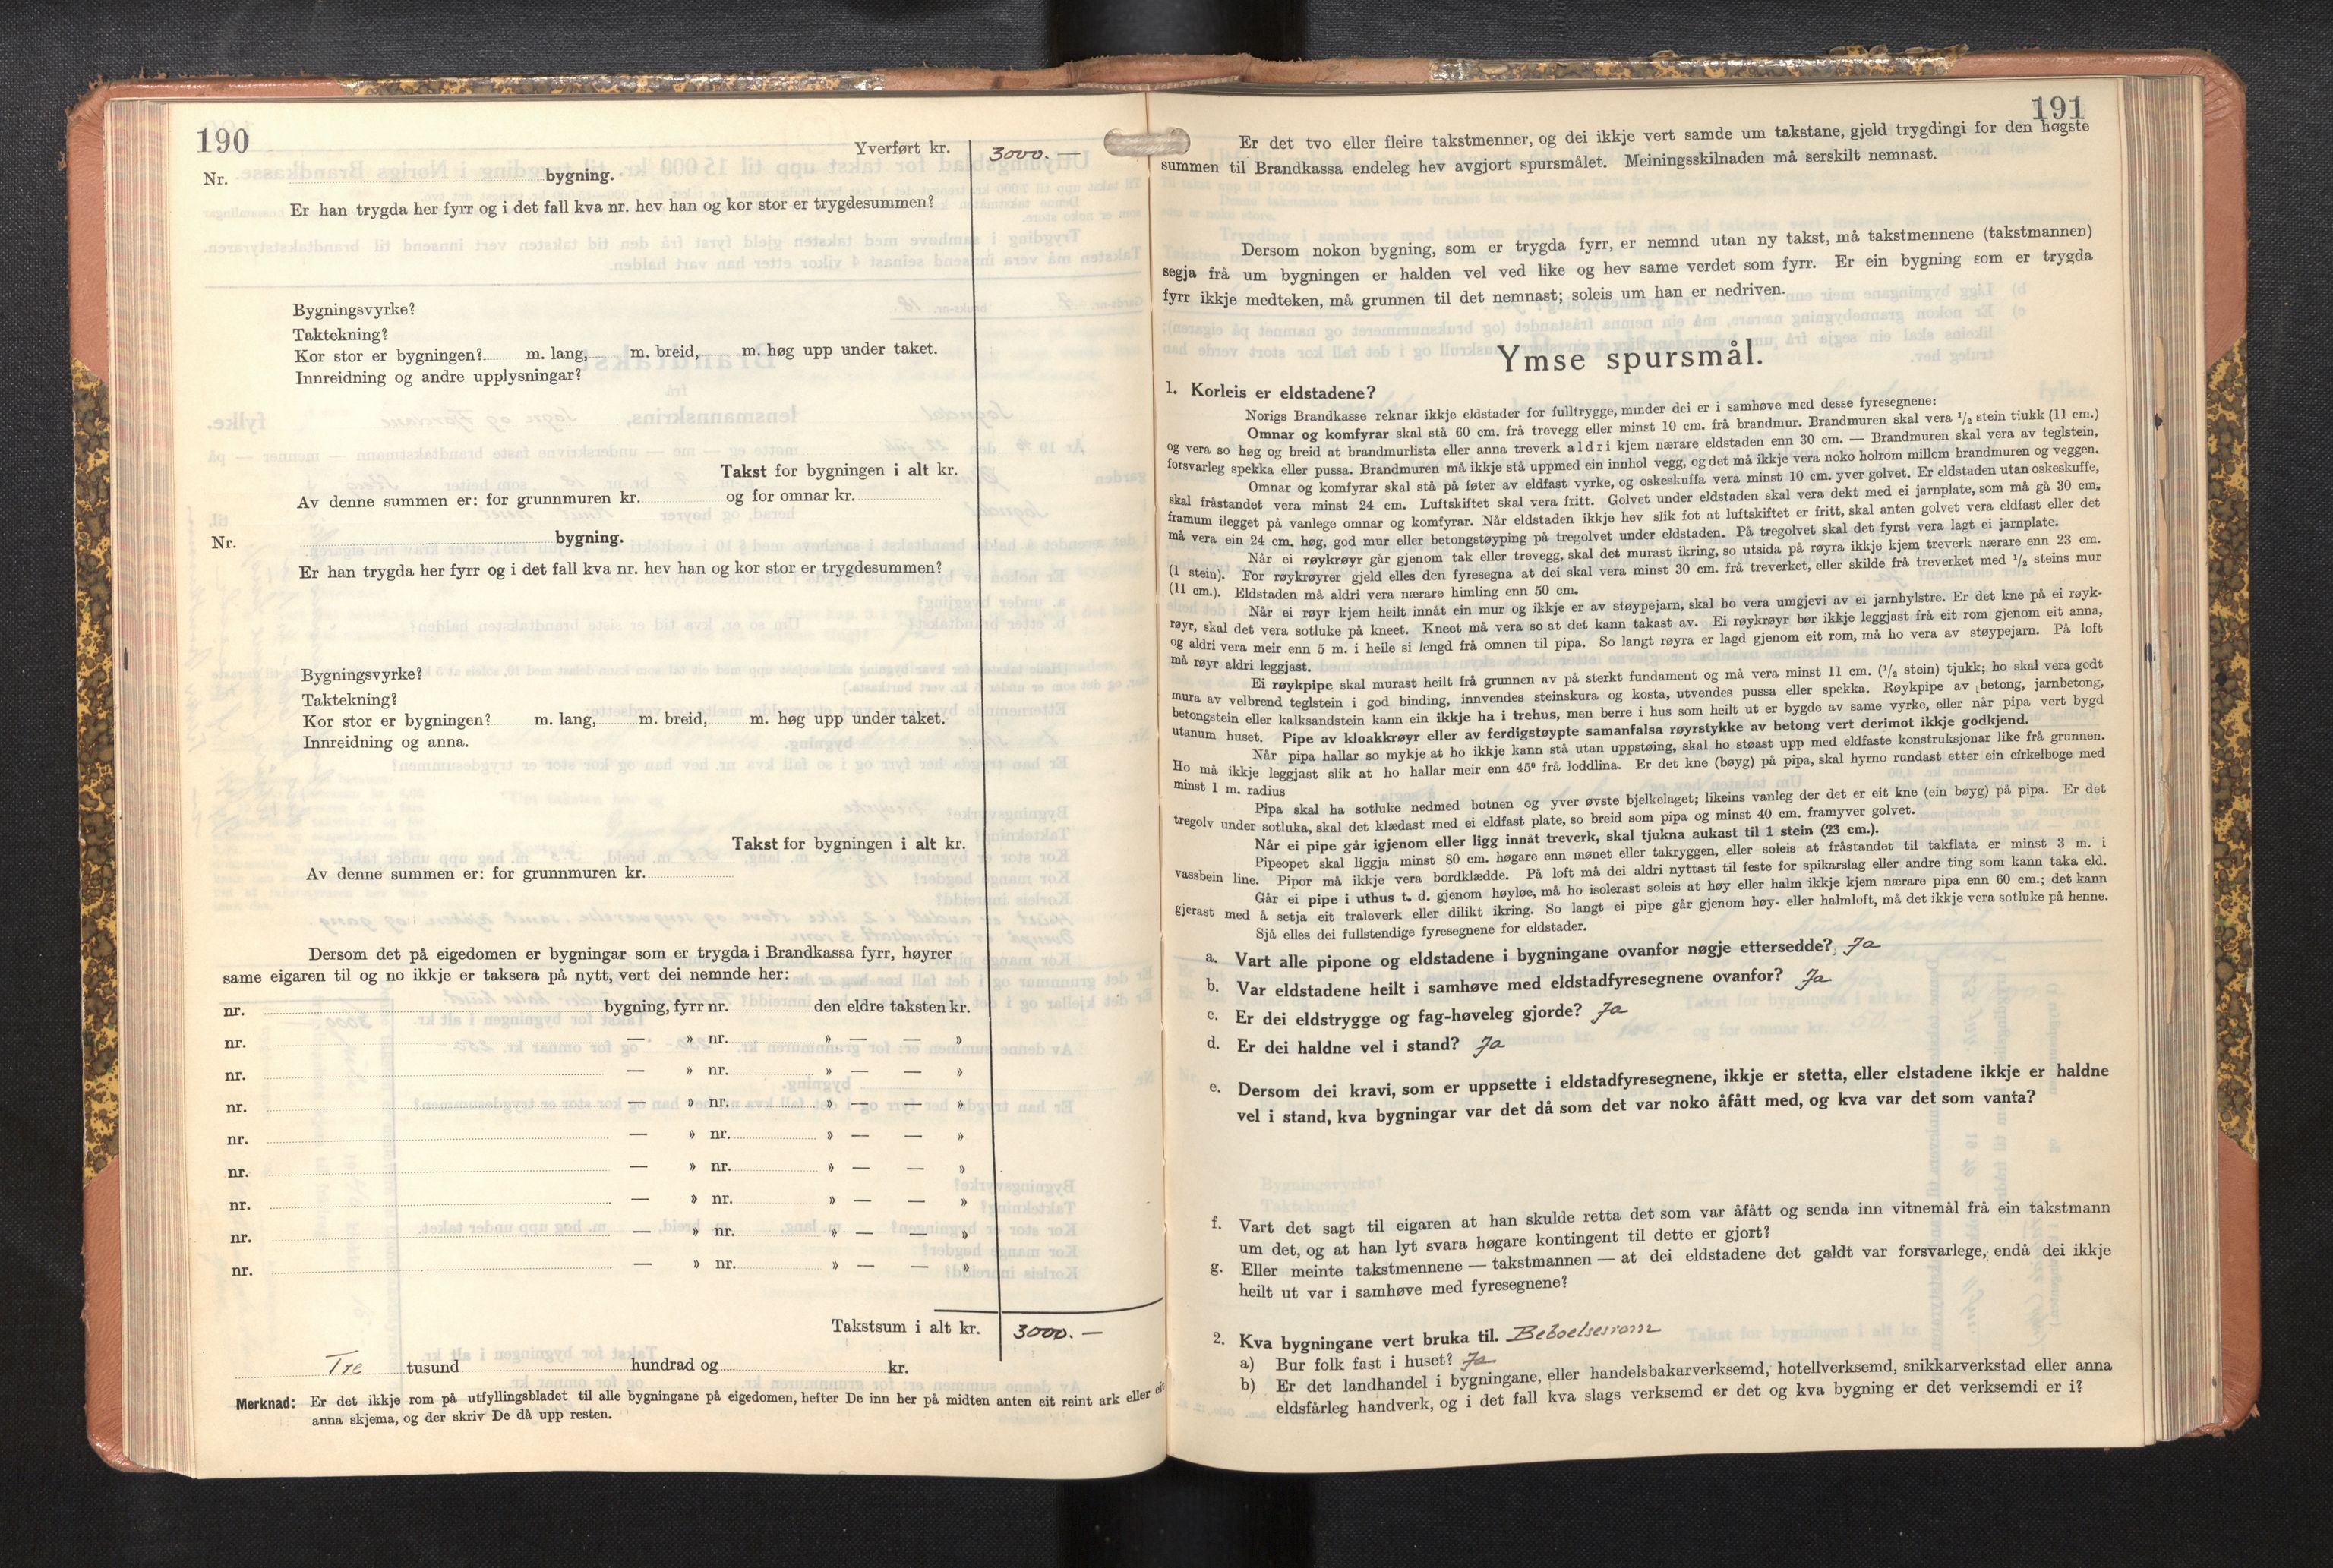 190
Yverført kr. 3000.—
Nr. bygning.
Er han trygda her fyrr og i det fall kva nr. hev han og kor stor er trygdesummen?
Bygningsvyrke?
Taktekning?
Kor stor er bygningen? m. lang, m. breid, m. høg upp under taket.
Innreidning og andre upplysningar?
Takst for bygningen i alt kr.
Av denne summen er: for grunnmuren kr. og for omnar kr.
Nr. bygning.
Er han trygda her fyrr og i det fall kva nr. hev han og kor stor er trygdesummen?
Bygningsvyrke?
Taktekning?
Kor stor er bygningen? m. lang, m. breid, m. høg upp under taket.
Innreidning og anna.
Takst for bygningen i alt kr.
Av denne summen er: for grunnmuren kr.
Dersom det på eigedomen er bygningar som er trygda i Brandkassa fyrr, høyrer
same eigaren til og no ikkje er taksera på nytt, vert dei nemnde her:
nr. bygning, fyrr nr. den eldre taksten kr.
nr. — » nr. » — — »
nr. — » nr. » — — »
nr. — » nr. » — — »
nr. — » nr. » — — »
nr. — » nr. » — — »
nr. — » nr. » — — »
nr. — » nr. » — — »
nr. — » nr. » — — »
Takstsum i alt kr. 3000.—
Tre tusund hundrad og kr.
Merknad: Er det ikkje rom på utfyllingsbladet til alle bygningane på eigedomen, hefter De inn her på midten anten eit reint ark eller eit
anna skjema, og der skriv De då upp resten.
191
Er det tvo eller fleire takstmenner, og dei ikkje vert samde um takstane, gjeld trygdingi for den høgste
summen til Brandkassa endeleg hev avgjort spursmålet. Meiningsskilnaden må serskilt nemnast.
Dersom nokon bygning, som er trygda fyrr, er nemnd utan ny takst, må takstmennene (takstmannen)
segja frå um bygningen er halden vel ved like og hev same verdet som fyrr. Er ein bygning som er trygda
fyrr ikkje medteken, må grunnen til det nemnast; soleis um han er nedriven.
Ymse spursmål.
1. Korleis er eldstadene?
Norigs Brandkasse reknar ikkje eldstader for fulltrygge, minder dei er i samhøve med desse fyresegnene:
Omnar og komfyrar skal stå 60 cm. frå trevegg eller minst 10 cm. frå brandmur. Brandmuren skal vera ¹/₂ stein tjukk (11 cm.)
og vera so høg og breid at brandmurlista eller anna treverk aldri kjem nærare eldstaden enn 30 cm. — Brandmuren skal vera av teglstein,
forsvarleg spekka eller pussa. Brandmuren må ikkje stå uppmed ein innhol vegg, og det må ikkje vera noko holrom millom brandmuren og veggen.
Omnar og komfyrar skal stå på føter av eldfast vyrke, og oskeskuffa vera minst 10 cm. yver golvet. Er eldstaden utan oskeskuffe,
skal fråstandet vera minst 24 cm. Luftskiftet skal vera fritt. Golvet under eldstaden skal vera dekt med ei jarnplate, som må gå 30 cm.
framum ilegget på vanlege omnar og komfyrar. Når eldstaden ikkje hev slik fot at luftskiftet er fritt, skal anten golvet vera eldfast eller det
må vera ein 24 cm. høg, god mur eller betongstøyping på tregolvet under eldstaden. På tregolvet skal det fyrst vera lagt ei jarnplate.
Når ei røykrøyr går gjenom tak eller trevegg, skal det murast ikring, so utsida på røyra ikkje kjem treverk nærare enn 23 cm.
(1 stein). For røykrøyrer gjeld elles den fyresegna at dei skal vera minst 30 cm. frå treverket, eller skilde frå treverket med ¹/₂ steins mur
(11 cm.). Eldstaden må aldri vera nærare himling enn 50 cm.
Når ei røyr kjem heilt innåt ein mur og ikkje er av støypejarn, skal ho vera umgjevi av ei jarnhylstre. Er det kne på ei røyk-
røyr, skal det vera sotluke på kneet. Kneet må vera so at det kann takast av. Ei røykrøyr bør ikkje leggjast frå eit rom gjenom eit anna,
og aldri vera meir enn 5 m. i heile si lengd frå omnen til pipa. So langt røyra er lagd gjenom eit rom, må ho vera av støypejarn. På loft
må røyr aldri leggjast.
Ei røykpipe skal murast heilt frå grunnen av på sterkt fundament og må vera minst 11 cm. (¹/₂ stein) tjukk; ho skal vera godt
mura av velbrend teglstein i god binding, innvendes steinskura og kosta, utvendes pussa eller spekka. Røykpipe av betong, jarnbetong,
betongstein eller kalksandstein kann ein ikkje ha i trehus, men berre i hus som heilt ut er bygde av same vyrke, eller når pipa vert bygd
utanum huset. Pipe av kloakkrøyr eller av ferdigstøypte samanfalsa røyrstykke av betong vert derimot ikkje godkjend.
Når pipa hallar so mykje at ho ikkje kann stå utan uppstøing, skal ho støast upp med eldfaste konstruksjonar like frå grunnen.
Ho må ikkje leggjast slik at ho hallar meir enn 45° frå loddlina. Er det kne (bøyg) på pipa, skal hyrno rundast etter ein cirkelboge med
minst 1 m. radius
Pipa skal ha sotluke nedmed botnen og yver øvste bjelkelaget; likeins vanleg der det er eit kne (ein bøyg) på pipa. Er det
tregolv under sotluka, skal det klædast med ei eldfast plate, so breid som pipa og minst 40 cm. framyver golvet.
Når ei pipe går igjenom eller ligg innåt treverk, skal tjukna aukast til 1 stein (23 cm.).
Pipeopet skal liggja minst 80 cm. høgare enn mønet eller takryggen, eller soleis at fråstandet til takflata er minst 3 m. i
vassbein line. Pipor må ikkje vera bordklædde. På loft må dei aldri nyttast til feste for spikarslag eller andre ting som kann taka eld.
Går ei pipe i uthus t. d. gjenom høyløe, må ho isolerast soleis at høy eller halm ikkje kjem nærare pipa enn 60 cm.; det kann
gjerast med å setja eit traleverk eller dilikt ikring. So langt ei pipe går gjenom høy- eller halmloft, må det ikkje vera sotluke på henne.
Sjå elles dei fullstendige fyresegnene for eldstader.
a. Vart alle pipone og eldstadene i bygningane ovanfor nøgje ettersedde? Ja
b. Var eldstadene heilt i samhøve med eldstadfyresegnene ovanfor? Ja
c. Er dei eldstrygge og fag-høveleg gjorde? Ja
d. Er dei haldne vel i stand? Ja
e. Dersom dei kravi, som er uppsette i eldstadfyresegnene, ikkje er stetta, eller elstadene ikkje er haldne
vel i stand, kva bygningar var det då som det var noko åfått med, og kva var det som vanta?
f. Vart det sagt til eigaren at han skulde retta det som var åfått og senda inn vitnemål frå ein takstmann
um det, og at han lyt svara høgare kontingent til dette er gjort?
g. Eller meinte takstmennene — takstmannen — at dei eldstadene det galdt var forsvarlege, endå dei ikkje
heilt ut var i samhøve med fyresegnene?
2. Kva bygningane vert bruka til. Beboelsesrom
a) Bur folk fast i huset? Ja
b) Er det landhandel i bygningane, eller handelsbakarverksemd, hotellverksemd, snikkarverkstad eller anna
eldsfårleg handverk, og i det fall kva slags verksemd er det og kva bygning er det verksemdi er i?